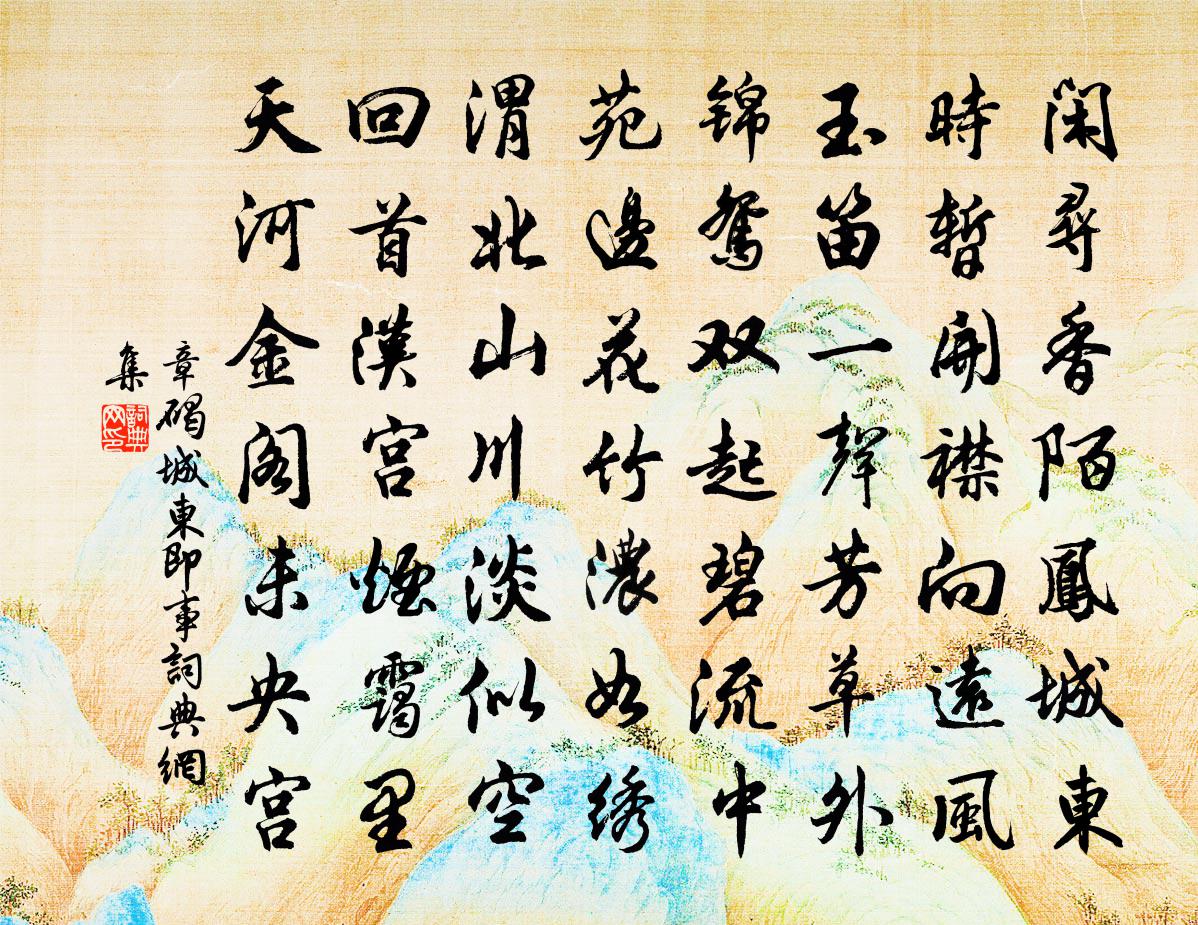 閑尋香陌鳳城東
時暫開襟向遠風
玉笛一聲芳草外
锦鴛双起碧流中
苑邊花竹濃如绣
渭北山川淡似空
回首漢宮煙靄里
天河金阁未央宮
章碣城東即事詞典網
集
詞典
网印